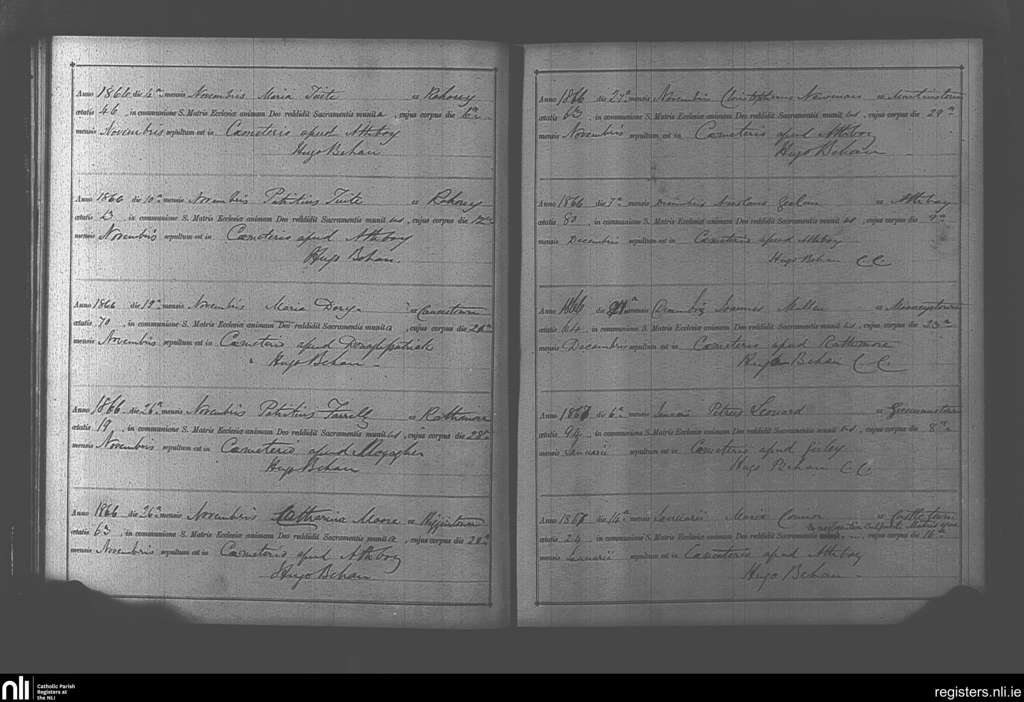 Anno 1866 die 6a mensis Novembris Maria Tuite ex Rahoney
ætatis 46, in communione S. Matris Ecclesiæ animam Deo reddidit Sacramentis munita, cujus corpus die
mensis Novembris sepultum est in Cœmeterio apud Athboy
Hugo Behan
Anno 1866 die 10a mensis Novembris Patritius Tuite ex Rahoney
ætatis 23, in communione S. Matris Ecclesiæ animam Deo reddidit Sacramentis munitus, cujus corpus die 12a
mensis Novembris sepultum est in Cœmeterio apud Athboy
Hugo Behan.
Anno 1866 die 19a mensis Novembris Maria Dory ex
ætatis 70, in communione S. Matris Ecclesiæ animam Deo reddidit Sacramentis munita, cujus corpus die 21a
mensis Novembris sepultum est in Cœmeterio apud Donaghpatrick
Hugo Behan
Anno 1866 die 26a mensis Novembris Patritius Farrelly ex Rathmore
ætatis 19, in communione S. Matris Ecclesiæ animam Deo reddidit Sacramentis munitus, cujus corpus die 28a
mensis Novembris sepultum est in Cœmeterio apud Moyagher
Hugo Behan
Anno 1866 die 26a mensis Novembris Catharina Moore ex
ætatis 63, in communione S. Matris Ecclesiæ animam Deo reddidit Sacramentis munita, cujus corpus die 28a
mensis Novembris sepultum est in Cœmeterio apud Athboy
Hugo Behan
Anno 1866 die 27a mensis Novembris Christophorus Newman ex Martinstown
ætatis 63, in communione S. Matris Ecclesiæ animam Deo reddidit Sacramentis munitus, cujus corpus die 29a
mensis Novembris sepultum est in Cœmeterio apud Athboy
Hugo Behan
Anno 1866 die 7a mensis Decembris ex Athboy
ætatis 80, in communione S. Matris Ecclesiæ animam Deo reddidit Sacramentis munitus, cujus corpus die 9a
mensis Decembris sepultum est in Cœmeterio apud Athboy
Hugo Behan CC
Anno 1866 die 21a mensis Decembris Joannes Mullen ex Mooneystown
ætatis 64, in communione S. Matris Ecclesiæ animam Deo reddidit Sacramentis munitus, cujus corpus die 23a
mensis Decembris sepultum est in Cœmeterio apud Rathmore
Hugo Behan CC
Anno 1867 die 6a mensis Januarii Petrus Leonard ex Greenanstown
ætatis 94, in communione S. Matris Ecclesiæ animam Deo reddidit Sacramentis munitus, cujus corpus die 8a
mensis Januarii sepultum est in Cœmeterio apud
Hugo Behan CC
Anno 1867 die 14a mensis Januarii Maria Connor ex Castletown
ætatis 24, in communione S. Matris Ecclesiæ animam Deo reddidit Sacramentis munit, cujus corpus die 16a
mensis Januarii sepultum est in Cœmeterio apud Athboy
Hugo Behan
nli
Catholic Parish
Registers at
the NLI
registers.nli.ie